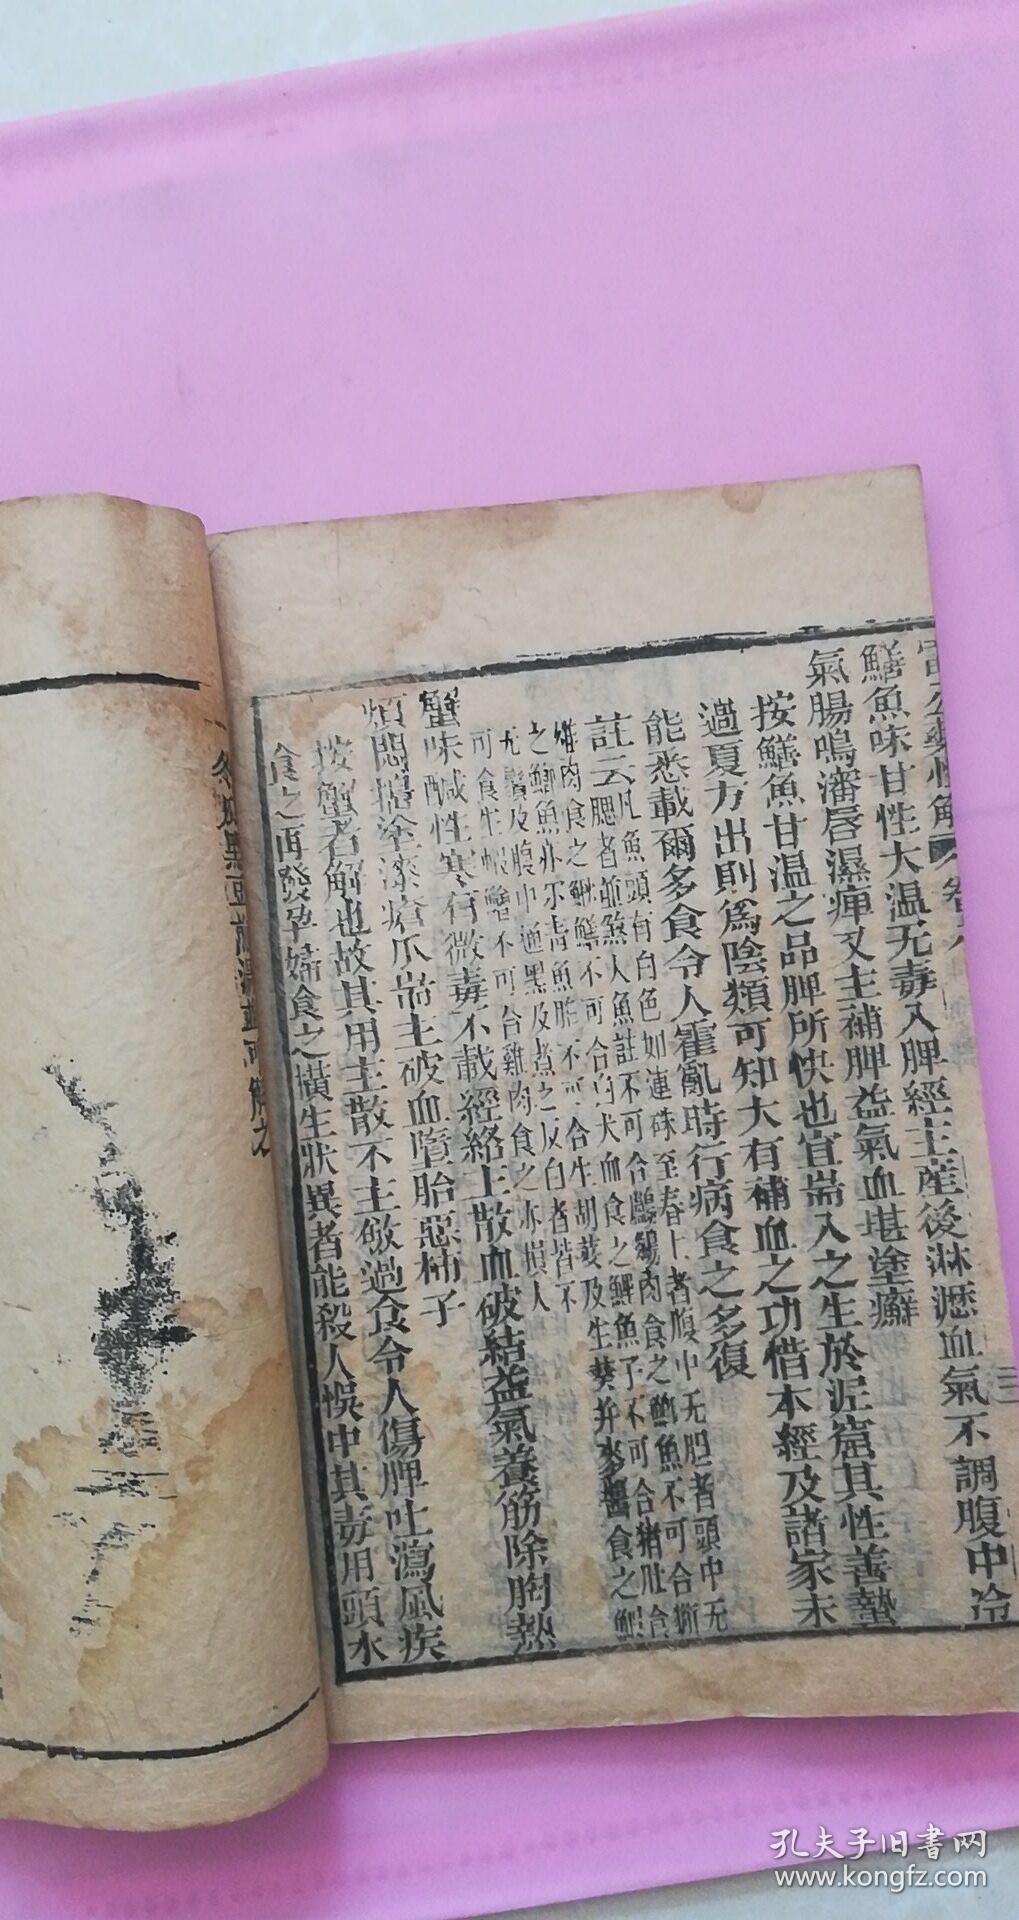 雷公藥性解 卷六
鱔魚味甘性大温无毒入脾經主産後淋瀝血氣不調腹中冷
氣腸鳴瀋唇濕痺又主補脾益氣血堪塗癬
按鱔魚甘温之品脾所快也宜耑入之生於泥窟其性善蟄
過夏方出則爲陰類可知大有補血之功惜本經及諸家未
能悉載爾多食令人霍亂時行病食之多復
註云凡魚頭有白色如連珠至春上者腹中无胆者頭中无
腮者並煞人魚註不可合鸕鷀肉食之鯽魚不可合猪肚食
之鯽魚亦尔青魚胙不可合生胡荽及生葵并麥醬食之
无鬚及腹中通黑及煮之反白者皆不
可食生蝦鱠不可合雞肉食之亦損人
蟹味鹹性寒有微毒不載經絡主散血破結益氣養筋除胸熱
煩悶搗塗漆瘡爪耑主破血墮胎惡柿子
按蟹者解也故其用主散不主斂過食令人傷脾吐瀉風疾
食之再發孕婦食之橫生狀異者能殺人悞中其毒用頭水
冬瓜黑豆煎湯並可解之
孔夫子旧书网
www.kongfz.com